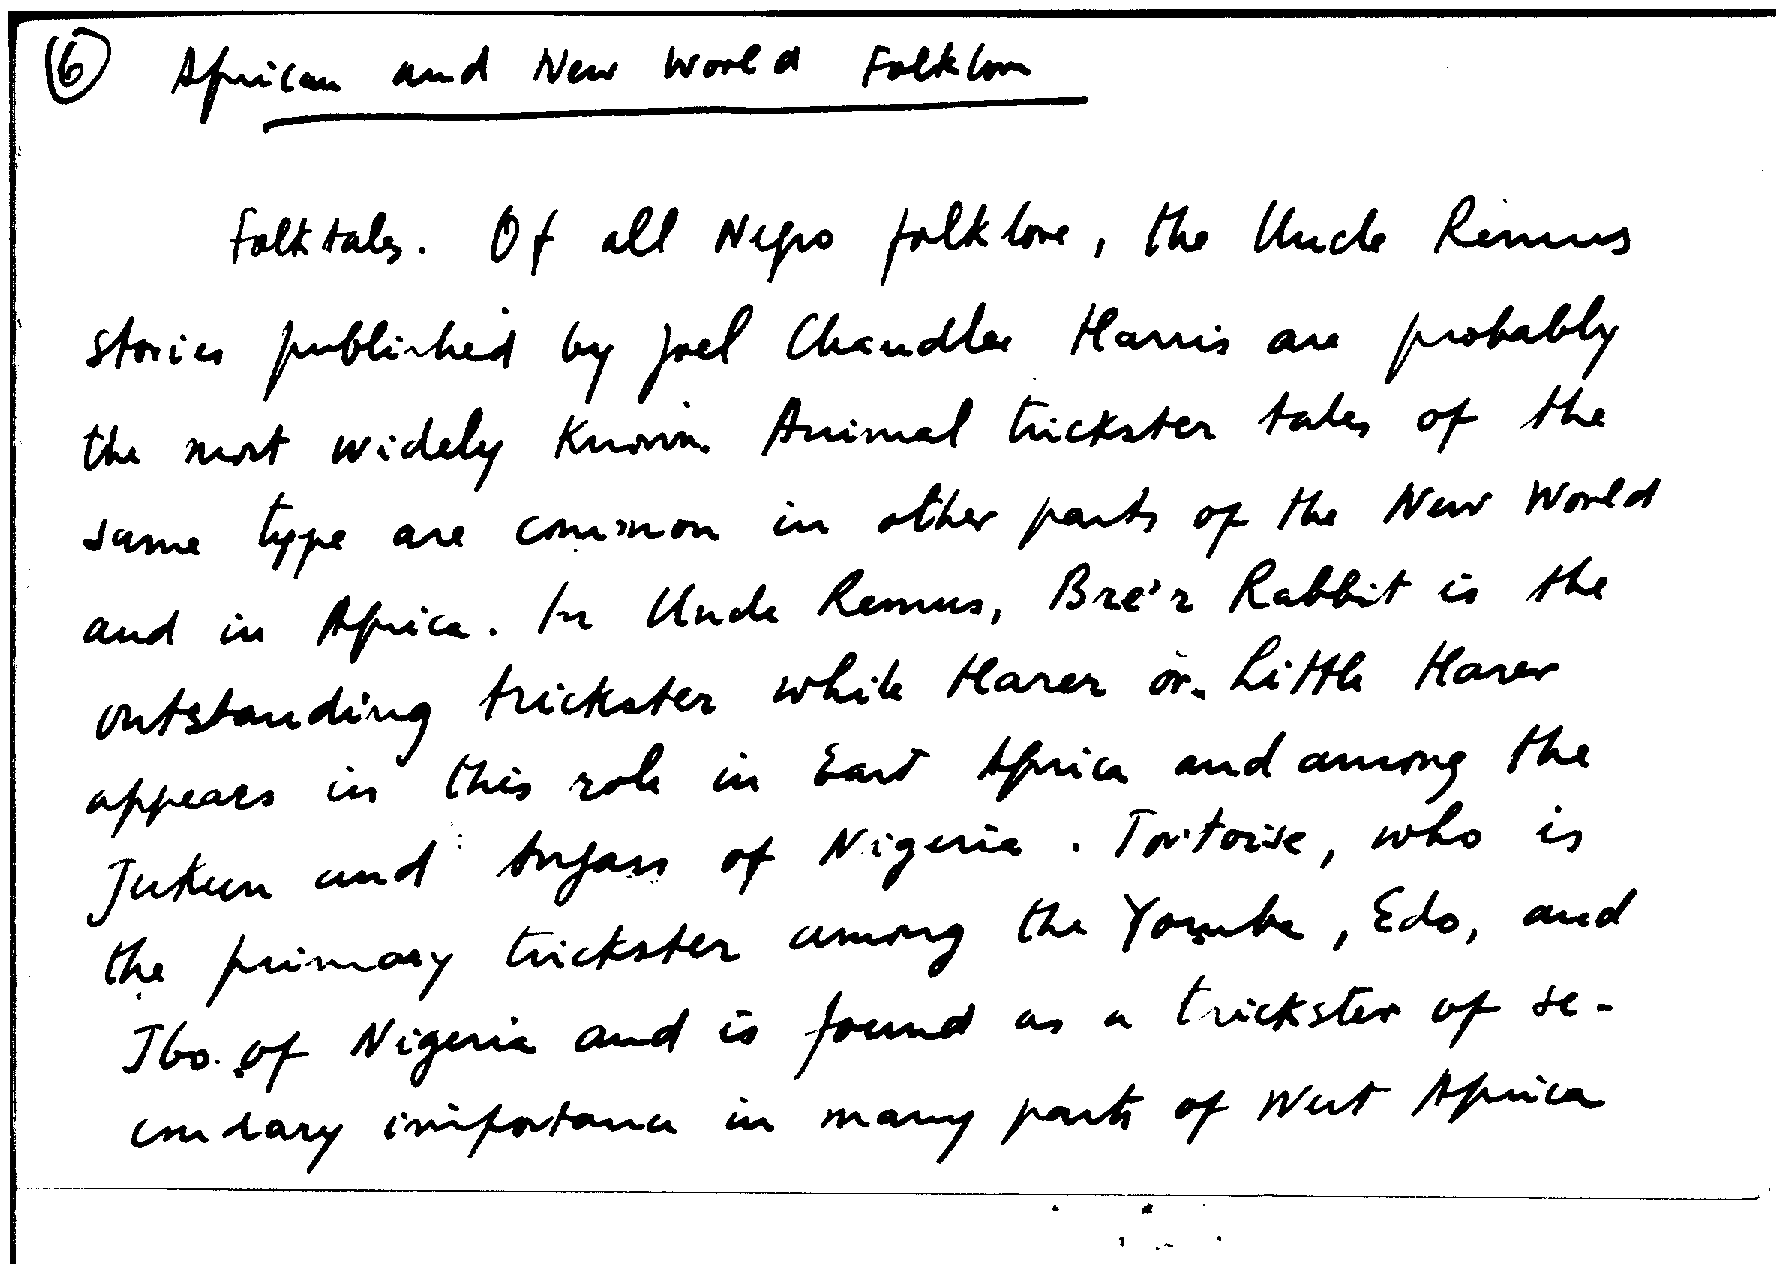 6 African and New World Folklore
Folktales. Of all Negro folklore, the Uncle Remus
stories published by Joel Chandler Harris are probably
the most widely known. Animal trickster tales of the
same type are common in other parts of the New World
and in Africa. In Uncle Remus, Bre'r Rabbit is the
outstanding trickster while Harer or Little Harer
appears in this role in East Africa and among the
Jukun and Angass of Nigeria. Tortoise, who is
the primary trickster among the Yoruba, Edo, and
Ibo of Nigeria and is found as a trickster of se-
condary importance in many parts of West Africa